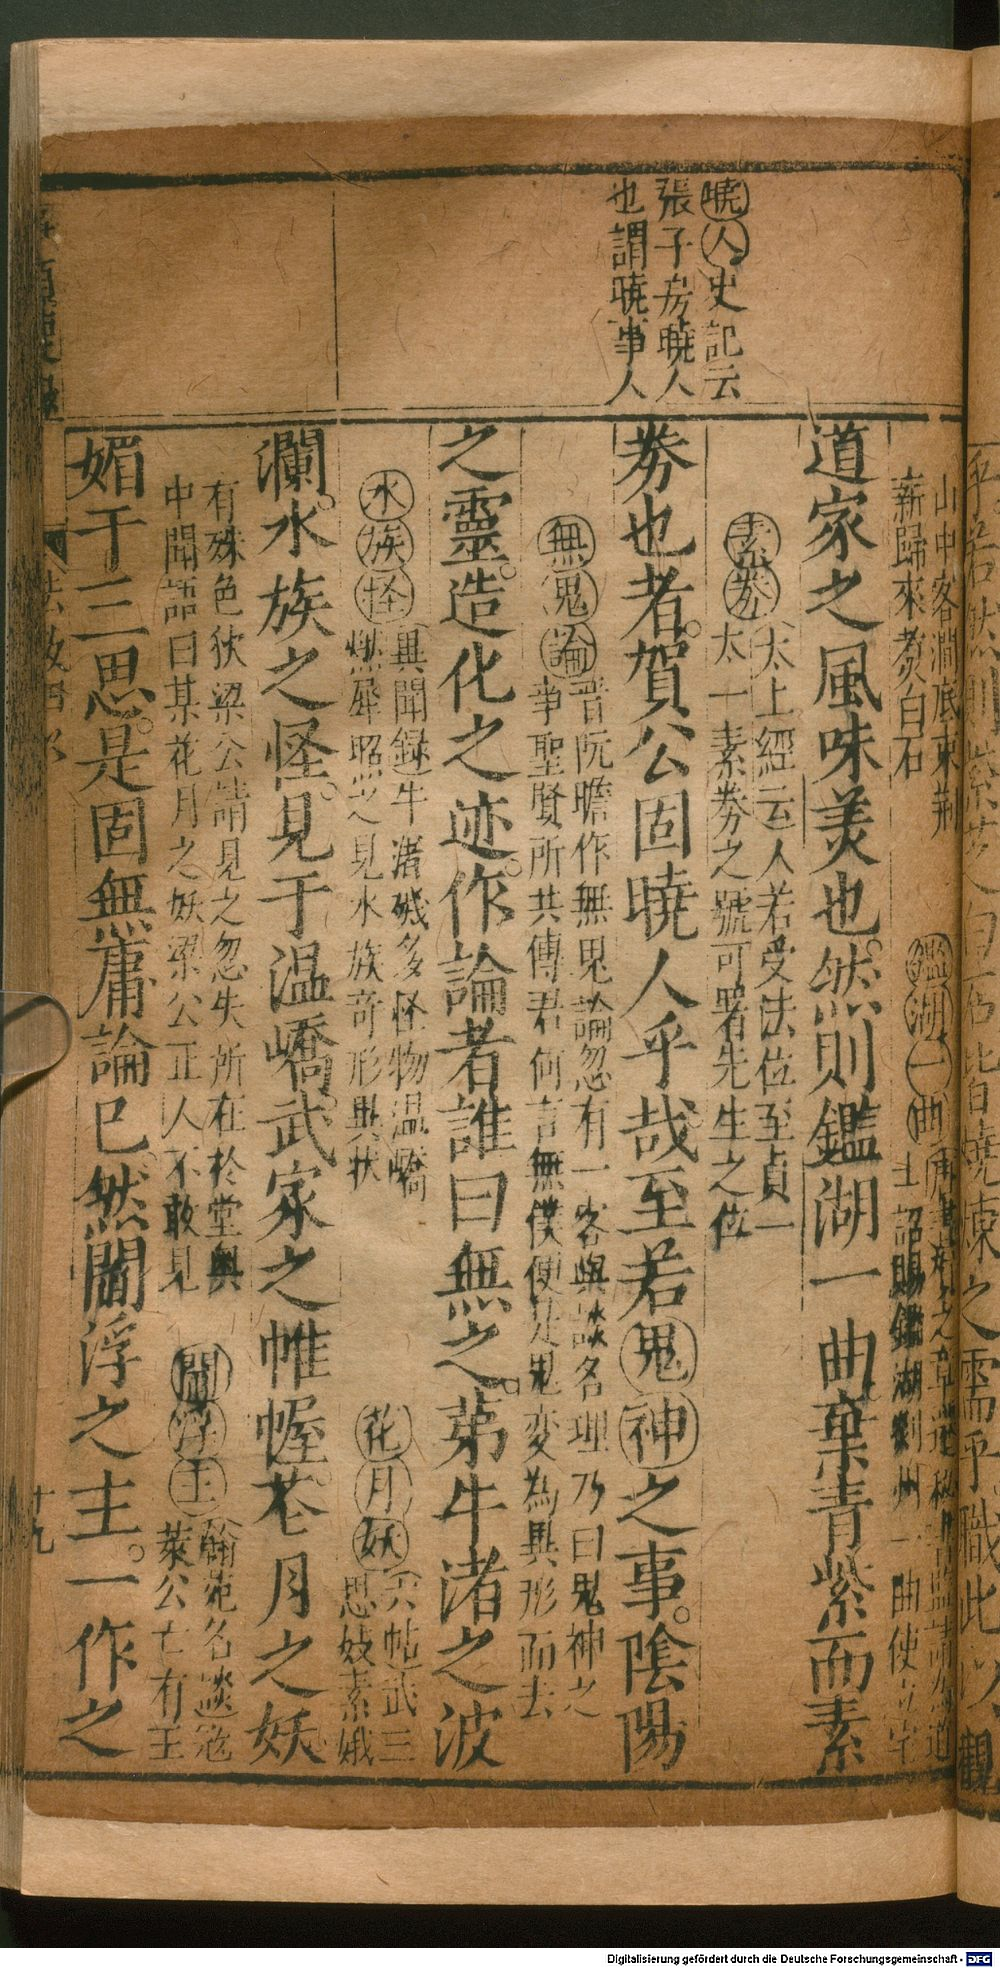 曉人史記云
張子房曉人
也謂曉事人
山中客澗底束荆
薪歸來煑白石
鑑湖一曲
上詔賜鑑湖剡州一曲使立字
道家之風味美也然則鑑湖一曲棄青紫而素
素劵太上經云人若受法位至貞一
太一素劵之號可署先生之位
劵也者賀公固曉人乎哉至若鬼神之事陰陽
無鬼論晋阮瞻作無鬼論忽有一客與談名理乃曰鬼神之
事聖賢所共傳君何言無僕便是鬼變為異形而去
之靈造化之迹作論者誰曰無之苐牛渚之波
水族怪異聞録牛渚磯多怪物温嶠
燃犀照之見水族奇形異狀
花月妖六帖武三
思妓素娥
瀾水族之怪見于温嶠武家之帷幄花月之妖
有殊色狄梁公請見之忽失所在於堂奥
中聞語曰某花月之妖梁公正人不敢見
閻浮王翰苑名談寇
萊公亡有王
媚于三思是固無庸論已然閻浮之主一作之
十九
Digitalisierung gefördert durch die Deutsche Forschungsgemeinschaft - DFG